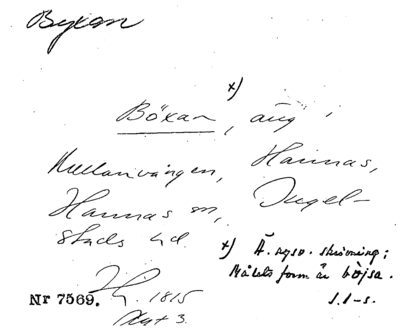 Byxan
x)
Böxan, äng
Mellanvången, Hannas,
Hannas sn, Ingel-
stads hd
x) Ä. nyso. skrivning;
Målets form är böjsa.
Nr 7569. 1815
Akt 3.